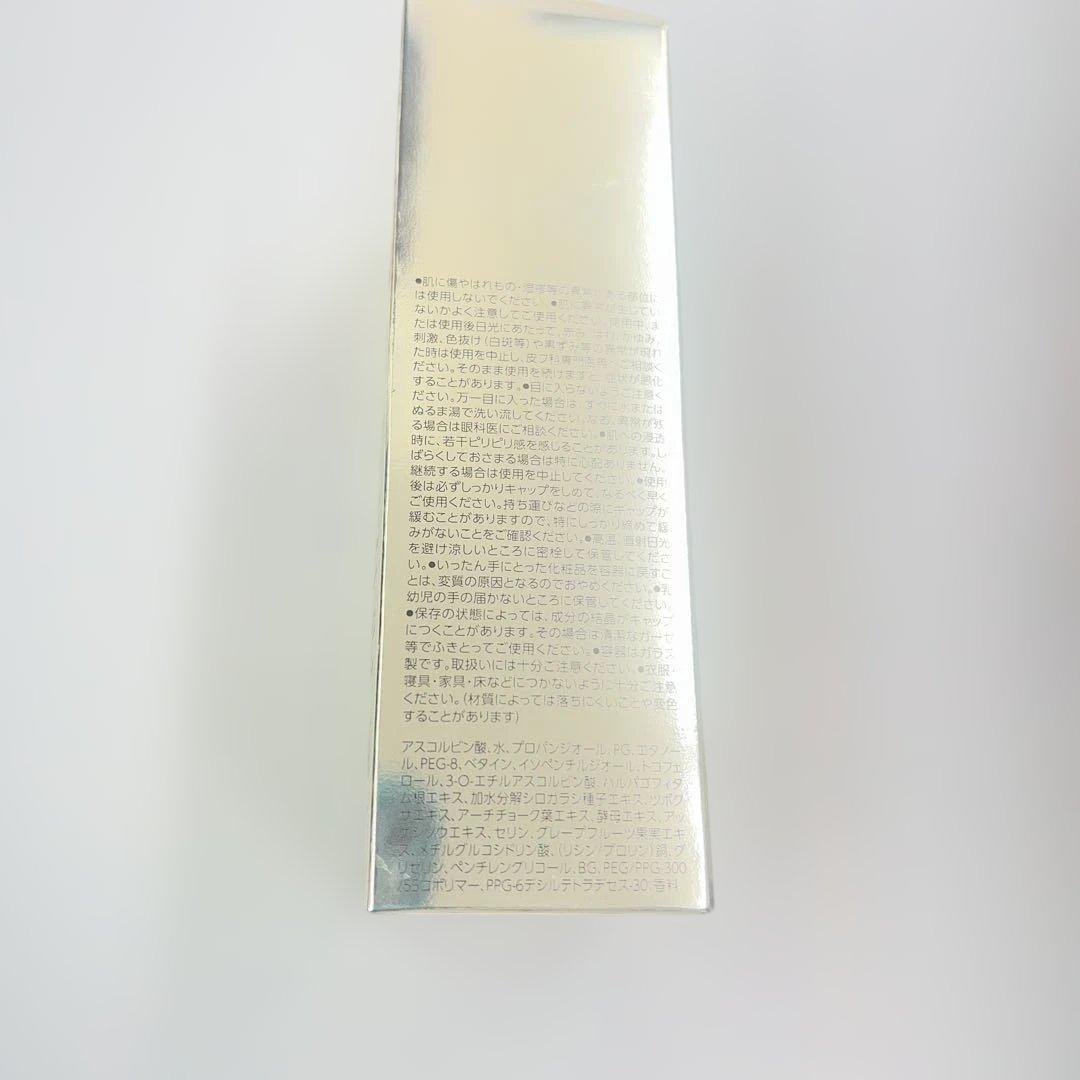 ●肌に傷やはれもの・湿疹等の異常がある部位に
は使用しないでください。●肌に異常が生じてい
ないかよく注意してご使用ください。使用中、ま
たは使用後日光にあたって、赤み、はれ、かゆみ、
刺激、色抜け(白斑等)や黒ずみ等の異常が現れ
た時は使用を中止し、皮フ科専門医等へご相談く
ださい。そのまま使用を続けますと、症状が悪化
することがあります。●目に入らないようご注意く
ださい。万一目に入った場合は、すぐに水または
ぬるま湯で洗い流してください。なお、異常が残
る場合は眼科医にご相談ください。●肌への浸透
時に、若干ピリピリ感を感じることがあります。し
ばらくしておさまる場合は特に心配ありません。
継続する場合は使用を中止してください。●使用
後は必ずしっかりキャップをしめて、なるべく早く
ご使用ください。持ち運びなどの際にキャップが
緩むことがありますので、特にしっかり締めて緩
みがないことをご確認ください。●高温、直射日光
を避け涼しいところに密栓して保管してくださ
い。●いったん手にとった化粧品を容器に戻すこ
とは、変質の原因となるのでおやめください。●乳
幼児の手の届かないところに保管してください。
●保存の状態によっては、成分の結晶がキャップ
につくことがあります。その場合は清潔なガーゼ
等でふきとってご使用ください。●容器はガラス
製です。取扱いには十分ご注意ください。●衣服・
寝具・家具・床などにつかないように十分ご注意
ください。(材質によっては落ちにくいことや変色
することがあります)
アスコルビン酸、水、プロパンジオール、PG、エタノー
ル、PEG-8、ベタイン、イソペンチルジオール、トコフェ
ロール、3-O-エチルアスコルビン酸、ハルパゴフィタ
ム根エキス、加水分解シロカラシ種子エキス、ツボク
サエキス、アーチチョーク葉エキス、酵母エキス、アッ
ケシソウエキス、セリン、グレープフルーツ果実エキ
ス、メチルグルコシドリン酸、(リシン/プロリン)銅、グ
リセリン、ペンチレングリコール、BG、PEG/PPG-300
/55コポリマー、PPG-6デシルテトラデセス-30、香料